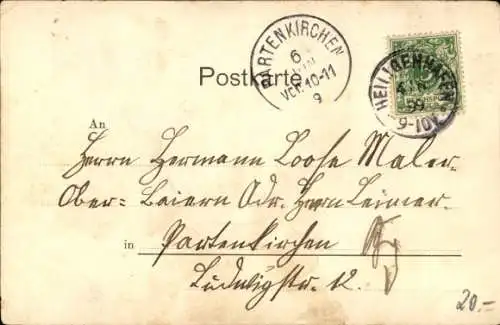 PARTENKIRCHEN
6
VOR. 10-11
9
HEILIGENHAFEN
99
9-10V
Postkarte.
An
Herrn Hermann Loose Maler-
Ober-Baiern Adr. Herrn Leimer-
in Partenkirchen
Ludwigstr. 12.
20.-